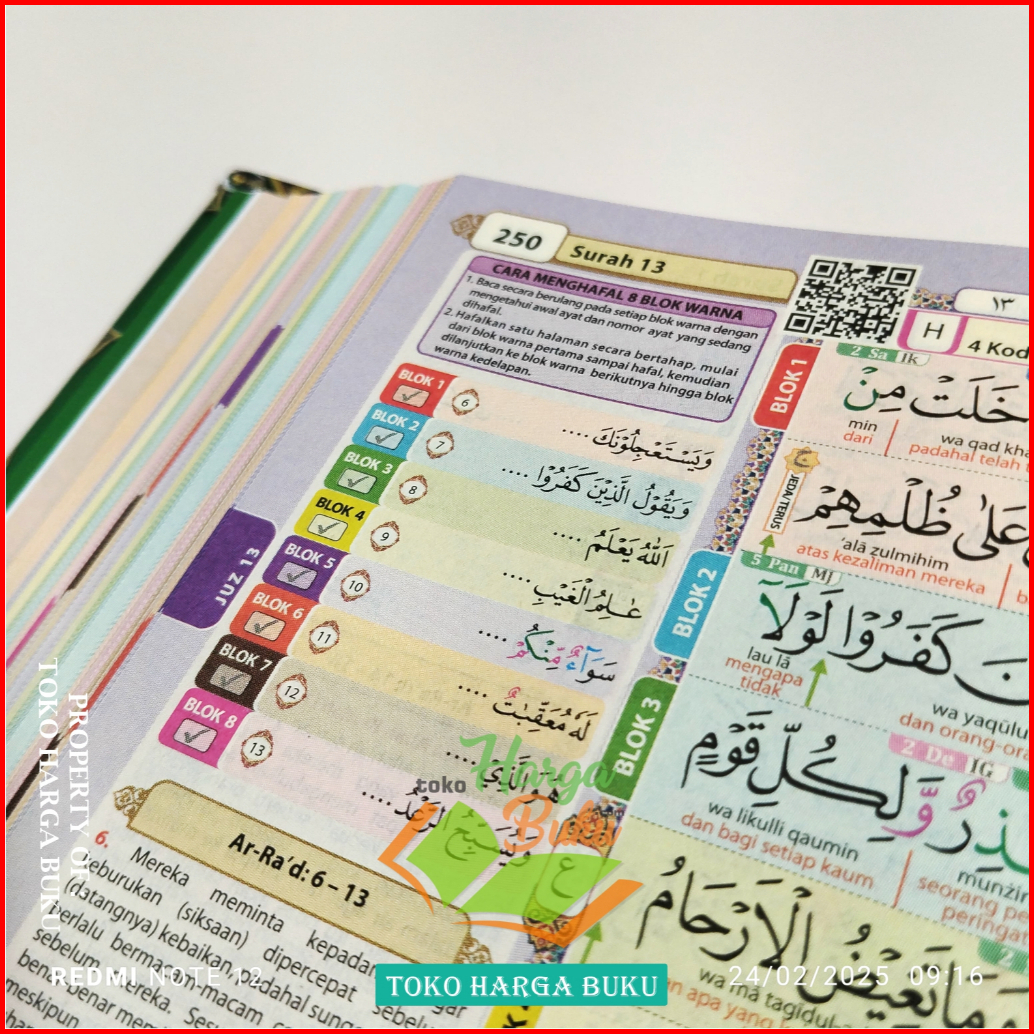 250
Surah 13
CARA MENGHAFAL 8 BLOK WARNA
1. Baca secara berulang pada setiap blok warna dengan
mengetahui awal ayat dan nomor ayat yang sedang
dihafal.
2. Hafalkan satu halaman secara bertahap, mulai
dari blok warna pertama sampai hafal, kemudian
dilanjutkan ke blok warna berikutnya hingga blok
warna kedelapan.
BLOK 1
6 وَيَسْتَعْجِلُوْنَكَ ....
BLOK 2
7 وَيَقُوْلُ الَّذِيْنَ كَفَرُوْا ....
BLOK 3
8 اَللّٰهُ يَعْلَمُ ....
BLOK 4
9 عٰلِمُ الْغَيْبِ ....
BLOK 5
10 سَوَاۤءٌ مِّنْكُمْ ....
BLOK 6
11 لَهٗ مُعَقِّبٰتٌ ....
BLOK 7
12 هُوَ الَّذِيْ ....
BLOK 8
13 وَيُسَبِّحُ الرَّعْدُ ....
JUZ 13
Ar-Ra'd: 6 – 13
6. Mereka meminta
keburukan (siksaan) dipercepat
(datangnya) kebaikan, padahal
berlalu bermacam-macam
sebelum mereka.
benar-benar
meskipun
١٣
H
4 Kod
BLOK 1
2 Sa IK
خَلَتْ مِنْ
min
dari
wa qad kha
padahal telah
JEDA/TERUS
عَلٰى ظُلْمِهِمْ
'alā ẓulmihim
atas kezaliman mereka
BLOK 2
5 Pan MJ
كَفَرُوْا لَوْلَا
lau lā
mengapa
tidak
wa yaqūlu
dan orang-ora
BLOK 3
2 De IG
وَّلِكُلِّ قَوْمٍ
wa likulli qaumin
dan bagi setiap kaum
munżir
seorang pe
peringat
وَمَا تَغِيْضُ الْاَرْحَامُ
wa mā tagīḍul
toko Harga Buku
PROPERTY OF
TOKO HARGA BUKU
REDMI NOTE 12
TOKO HARGA BUKU
24/02/2025 09:16